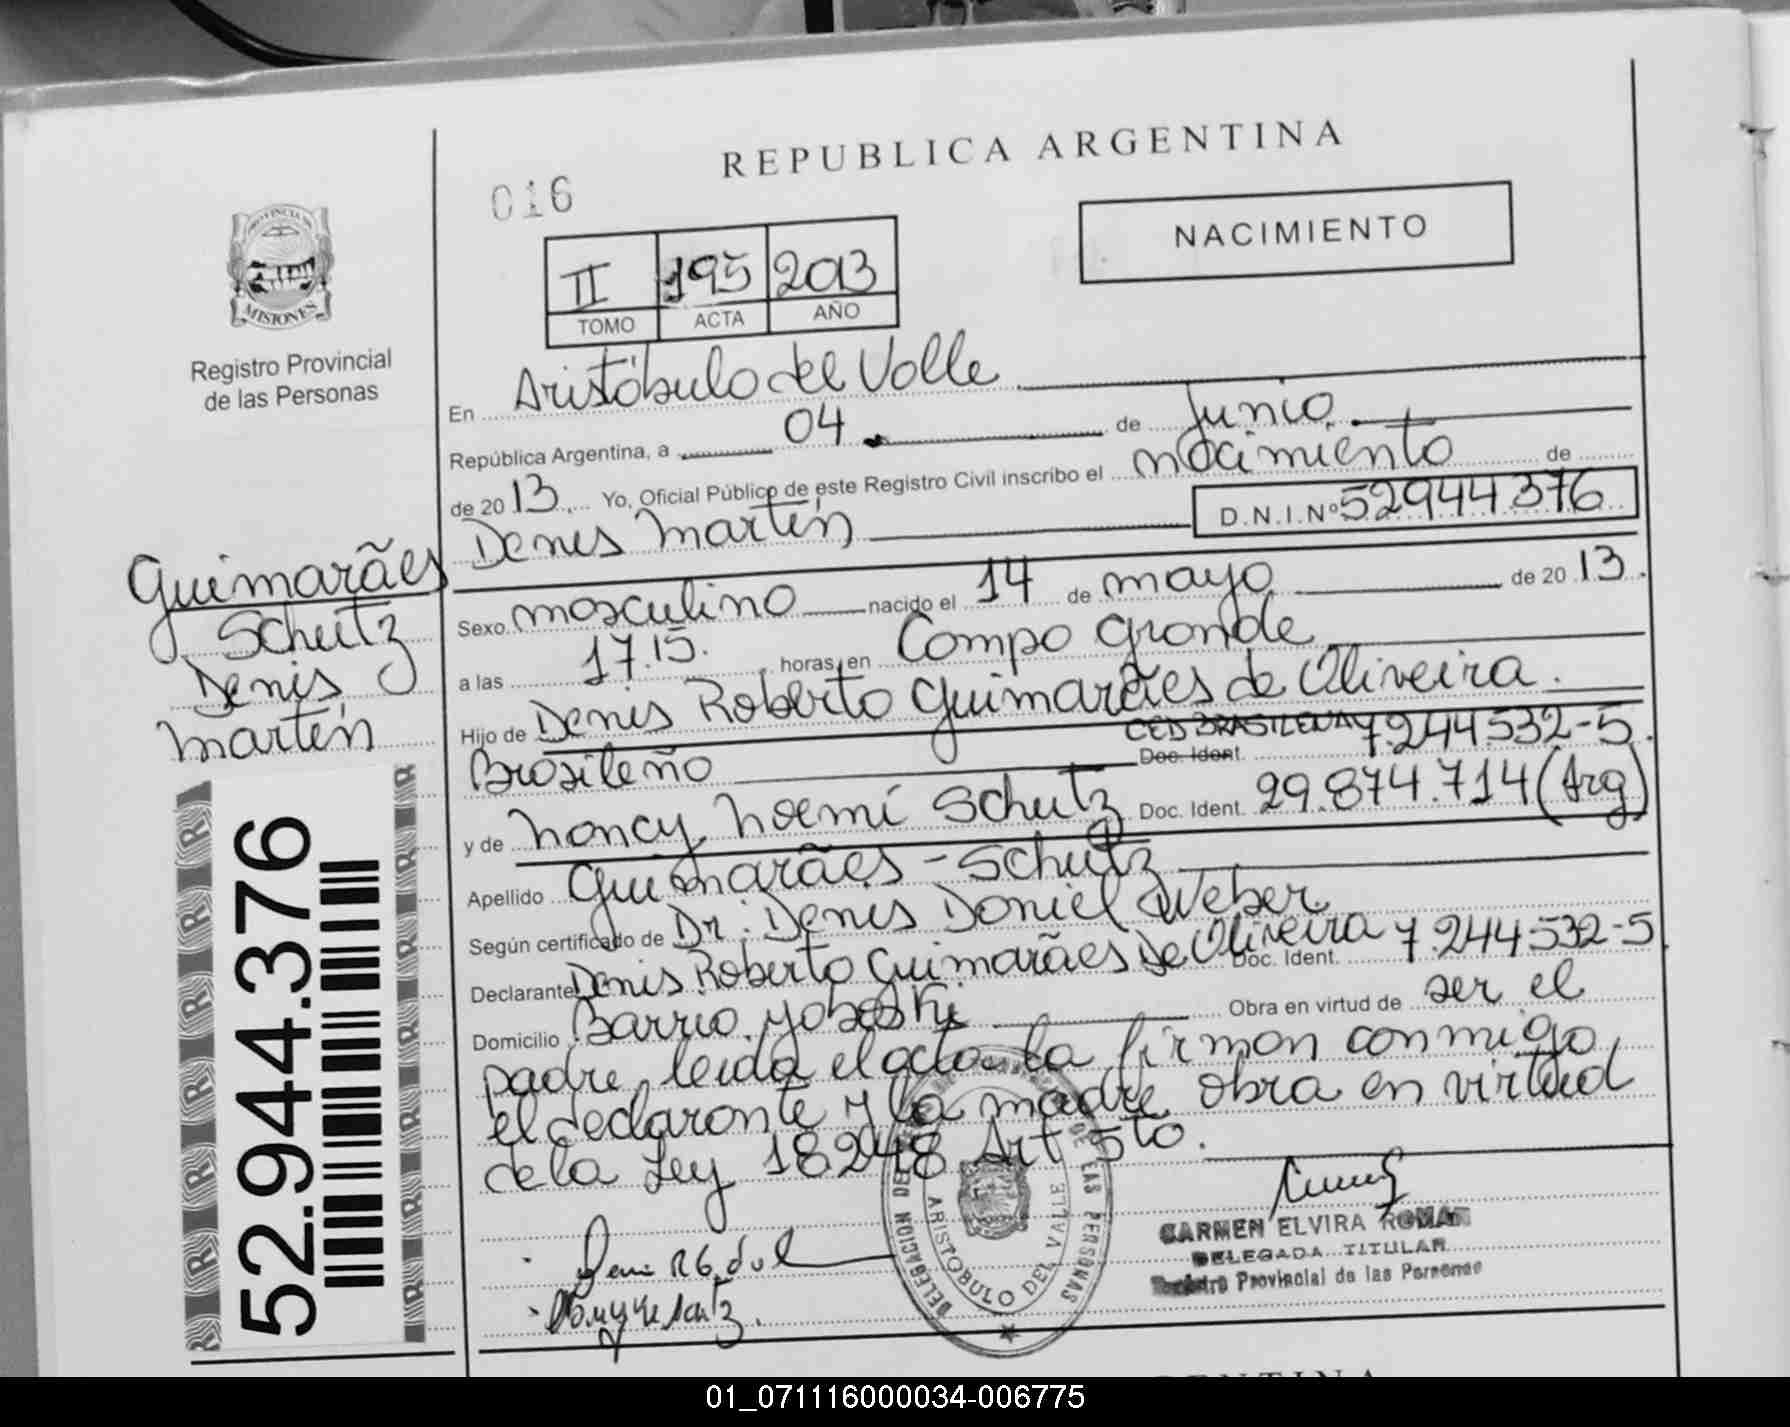 REPUBLICA ARGENTINA
016
NACIMIENTO
II 195 2013
TOMO ACTA AÑO
PROVINCIA DE
MISIONES
Registro Provincial
de las Personas
En Aristóbulo del Valle
República Argentina, a 04 de Junio
de 2013 Yo, Oficial Público de este Registro Civil inscribo el nacimiento de
Denis Martín D.N.I.Nº 52944376
Guimarães
Schutz
Denis
Martín
Sexo masculino nacido el 14 de mayo de 2013
a las 17.15. horas, en Campo Grande
Hijo de Denis Roberto Guimarães de Oliveira.
Brasileño CED BRASILENA Doc. Ident. 7.244.532-5.
y de Nancy Noemí Schutz Doc. Ident. 29.874.714 (Arg)
Apellido Guimarães - Schutz
Según certificado de Dr. Denis Daniel Weber
Declarante Denis Roberto Guimarães De Oliveira Doc. Ident. 7.244.532-5
Domicilio Barrio Obra en virtud de ser el
padre, leida el acta la firman conmigo
el declarante y la madre obra en virtud
de la Ley 18.248 Art 5to.
52.944.376
DELEGACION DE LAS PERSONAS
ARISTOBULO DEL VALLE
CARMEN ELVIRA ROMAN
DELEGADA TITULAR
Registro Provincial de las Personas
01_071116000034-006775